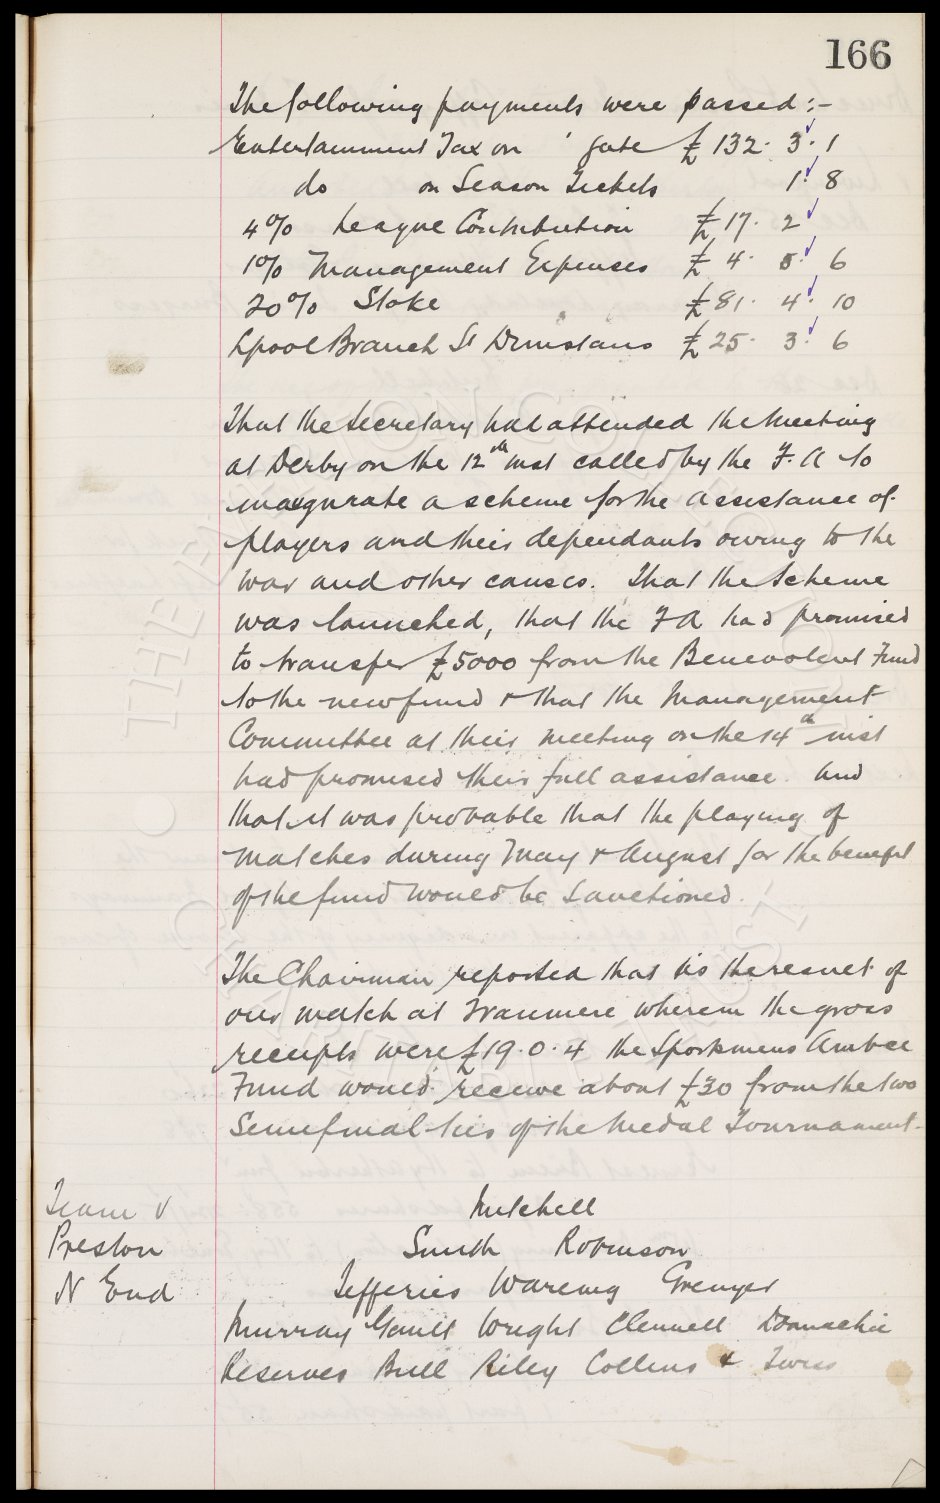 166
The following payments were passed :-
Entertainment Tax on gate £ 132. 3. 1
do on Season Tickets 1. 8
4% League Contribution £ 17. 2
1% Management Expenses £ 4. 5. 6
20% Stoke £ 81. 4. 10
Lpool Branch St Dunstans £ 25. 3. 6
That the Secretary had attended the Meeting
at Derby on the 12th inst called by the F.A to
inaugurate a scheme for the assistance of
players and their dependants owing to the
war and other causes. That the Scheme
was launched, that the FA had promised
to transfer £5000 from the Benevolent Fund
to the new fund & that the Management
Committee at their meeting on the 14th inst
had promised their full assistance. And
that it was probable that the playing of
matches during May & August for the benefit
of the fund would be Sanctioned.
The Chairman reported that as the result of
our match at Tranmere wherein the gross
receipts were £19.0.4 the Sportsmens Ambce
Fund would receive about £30 from the two
Semifinal ties of the Medal Tournament.
Team v
Preston
N End
Mitchell
Smith Robinson
Jefferies Wareing Grenyer
Murray Gault Wright Clennell Donnachie
Reserves Bull Riley Collins & Twiss
THE EVERTON COLLECTION
CHARITABLE TRUST